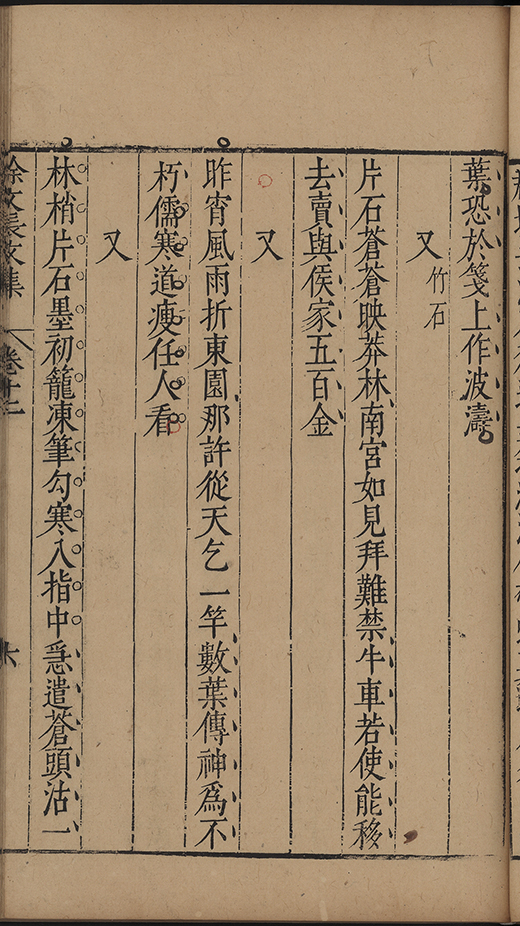 葉恐於箋上作波濤
又竹石
片石蒼蒼映莽林南宮如見拜難禁牛車若使能移
去賣與侯家五百金
又
昨宵風雨折東園那許從天乞一竿數葉傳神爲不
朽儒寒道瘦任人看
又
林梢片石墨初籠凍筆勾寒入指中急遣蒼頭沽一
徐文長文集 卷十二 六